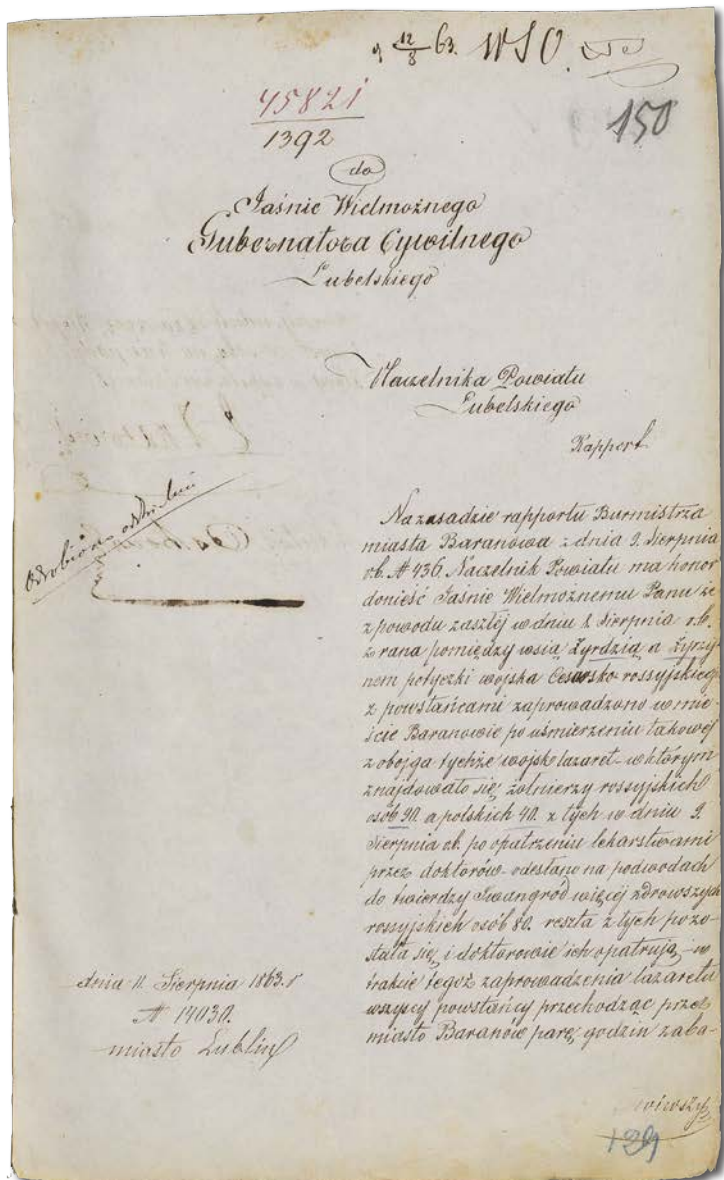 12/8 63. WSO
45821
1392
150
do
Jaśnie Wielmożnego
Gubernatora Cywilnego
Lubelskiego
Naczelnika Powiatu
Lubelskiego
Rapport
Na zasadzie rapportu Burmistrza
miasta Baranowa z dnia 9. Sierpnia
rb. N 436 Naczelnik Powiatu ma honor
donieść Jaśnie Wielmożnemu Panu że
z powodu zaszłej w dniu 8 Sierpnia r.b.
z rana pomiędzy wsią Żyrdzią a Żyrzy-
nem potyczki wojska Cesarsko-rossyjskiego
z powstańcami zaprowadzono w mie-
ście Baranowie po uśmierzeniu takowej
z obojga tychże wojsk lazaret w którym
znajdowało się żołnierzy rossyjskich
osób 90. a polskich 40. z tych w dniu 9.
Sierpnia rb. po opatrzeniu lekarstwami
przez doktorów odesłano na podwodach
do twierdzy Iwangród więcej zdrowszych
rossyjskich osób 80. reszta z tych pozo-
stała się i doktorowie ich opatrują, w
trakcie tegoż zaprowadzenia lazaretu
wszyscy powstańcy przechodząc przez
miasto Baranów parę godzin zaba-
wiwszy
dnia 11. Sierpnia 1863. r
N 14030.
miasto Lublin
139